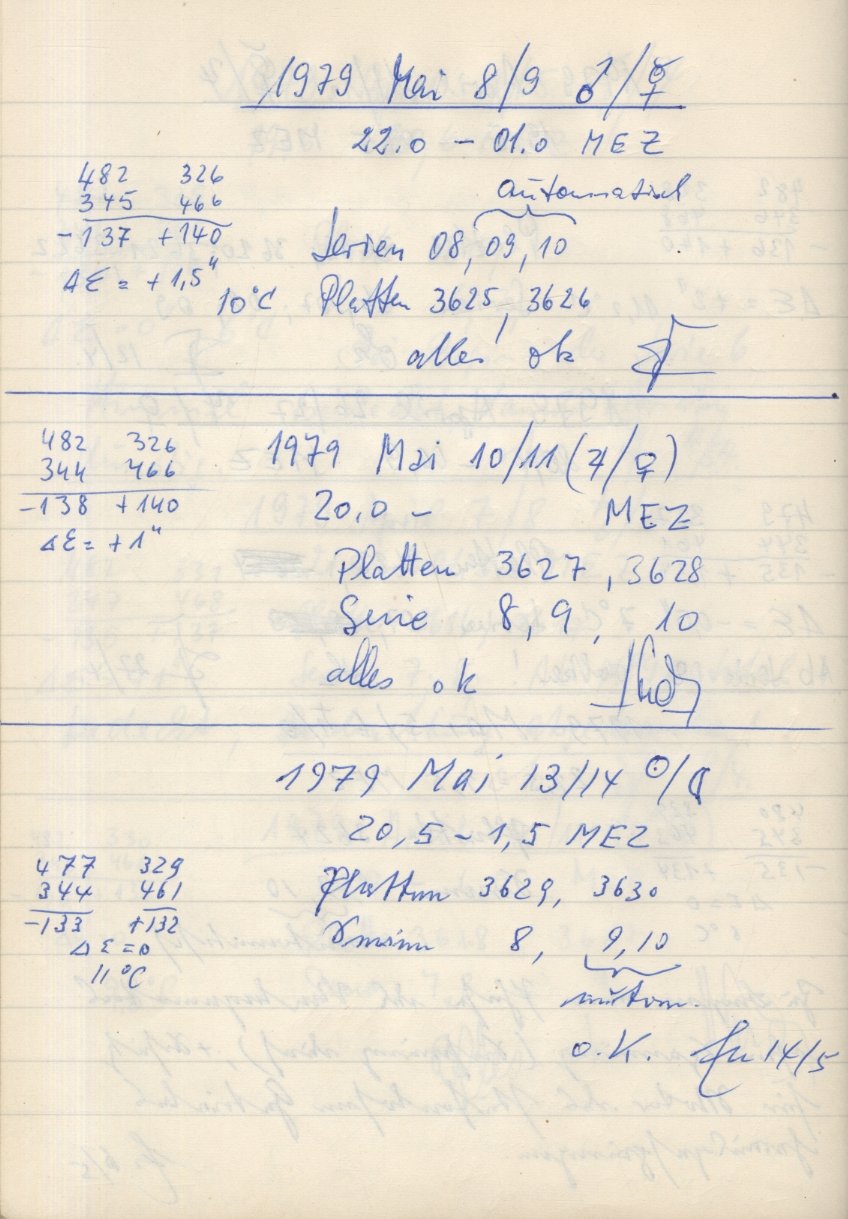 1979 Mai 8/9 ♂/☿
22.0 – 01.0 MEZ
482 326
345 466
-137 +140
Δε = +1,5"
automatisch
Serien 08, 09, 10
10°C Platten 3625, 3626
alles ok
482 326
344 466
-138 +140
Δε = +1"
1979 Mai 10/11 (♃/♀)
20,0 – MEZ
Platten 3627, 3628
Serie 8, 9, 10
alles ok
1979 Mai 13/14 ☉/☾
20,5 – 1,5 MEZ
477 329
344 461
-133 +132
Δε = 0
11°C
Platten 3629, 3630
Serien 8, 9, 10
autom.
o.K. 14/5